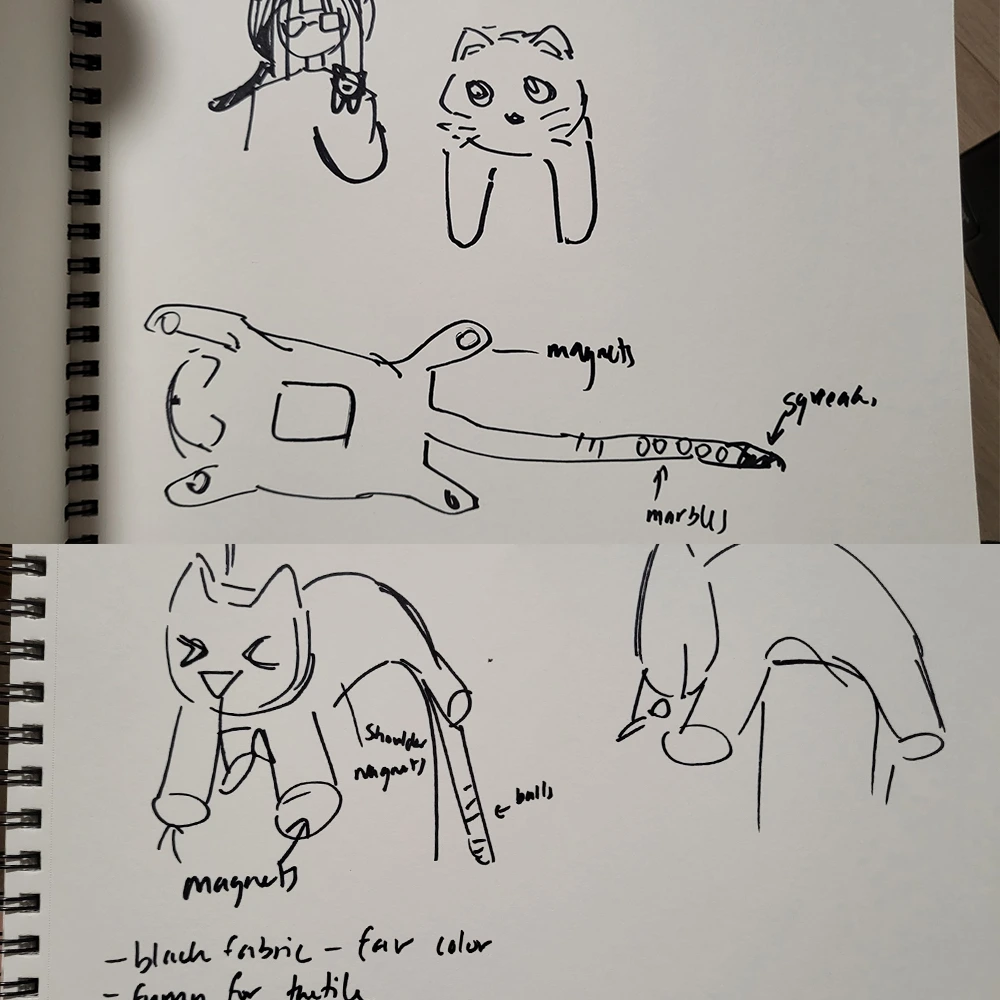 magnets
squeak.
marbles
Shoulder
magnets
← balls
magnets
- black fabric - fav color
for